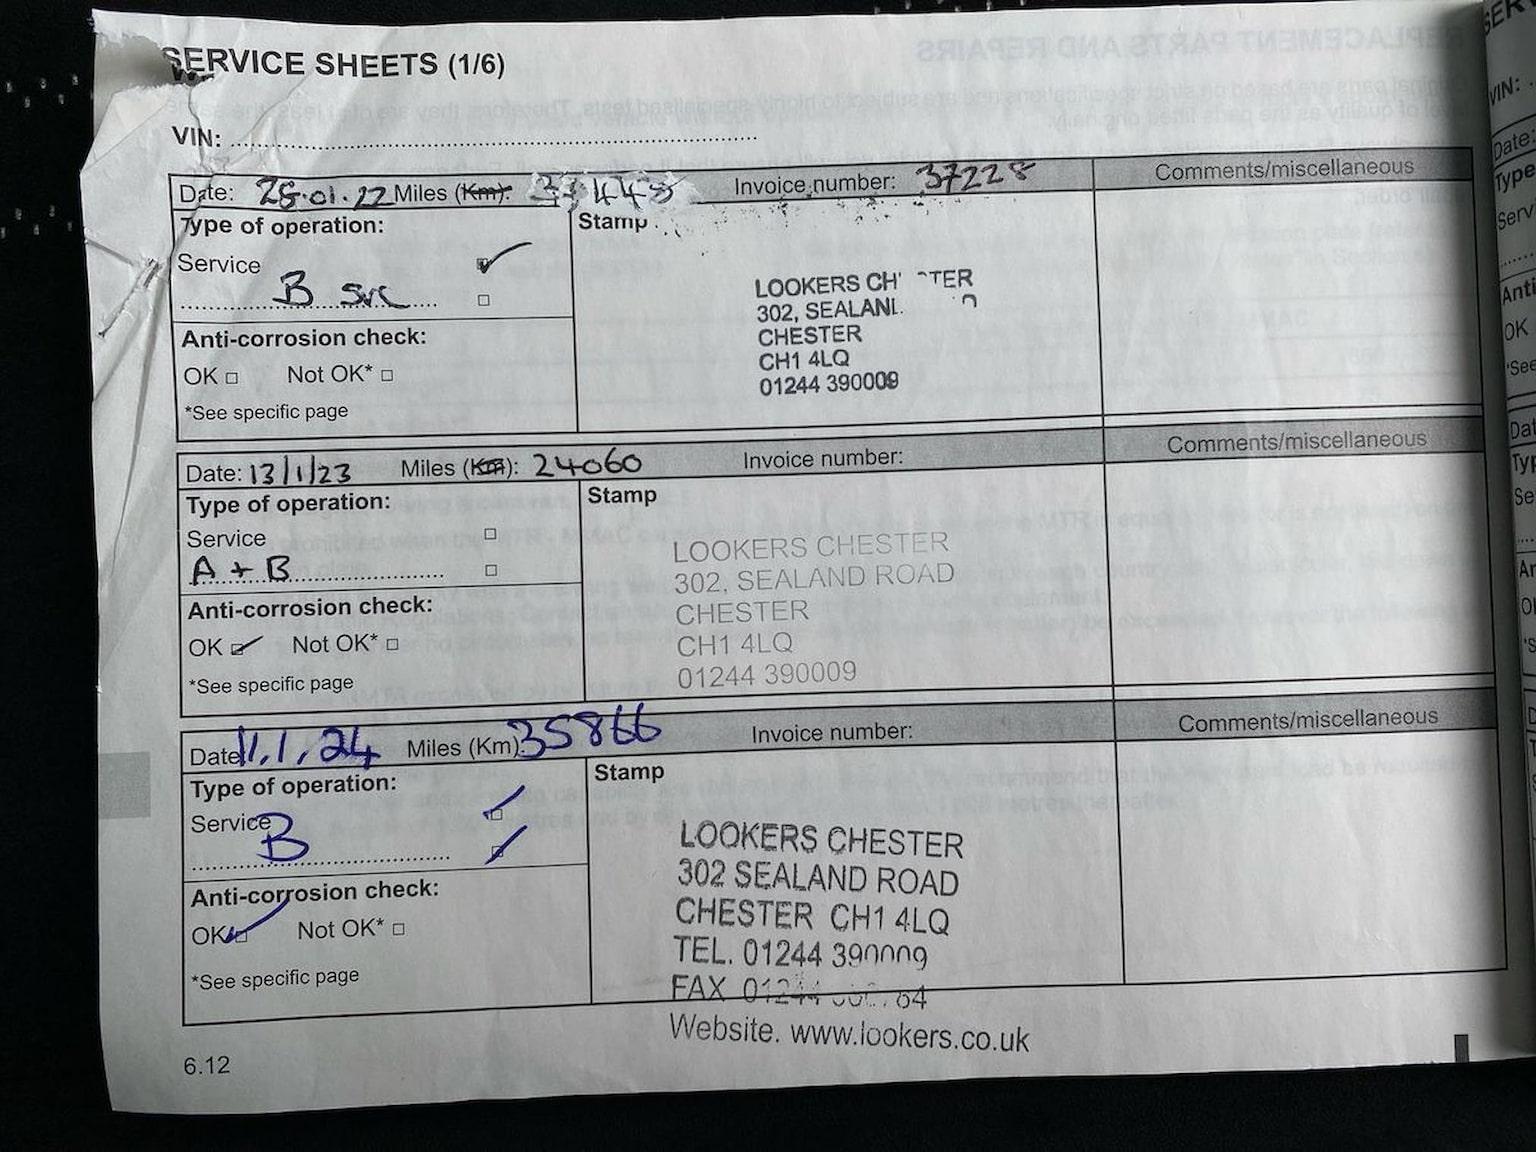 SERVICE SHEETS (1/6)
VIN:
Date: 28.01.22 Miles (Km): 23448 Invoice number: 37228 Comments/miscellaneous
Type of operation: Stamp
Service
B svc
Anti-corrosion check:
OK Not OK*
*See specific page
LOOKERS CH TER
302, SEALAN
CHESTER
CH1 4LQ
01244 390009
Date: 13/1/23 Miles (Km): 24060 Invoice number: Comments/miscellaneous
Type of operation: Stamp
Service
A + B
Anti-corrosion check:
OK Not OK*
*See specific page
LOOKERS CHESTER
302, SEALAND ROAD
CHESTER
CH1 4LQ
01244 390009
Date 11.1.24 Miles (Km): 35866 Invoice number: Comments/miscellaneous
Type of operation: Stamp
Service
B
Anti-corrosion check:
OK Not OK*
*See specific page
LOOKERS CHESTER
302 SEALAND ROAD
CHESTER CH1 4LQ
TEL. 01244 390009
FAX 01244
Website. www.lookers.co.uk
6.12